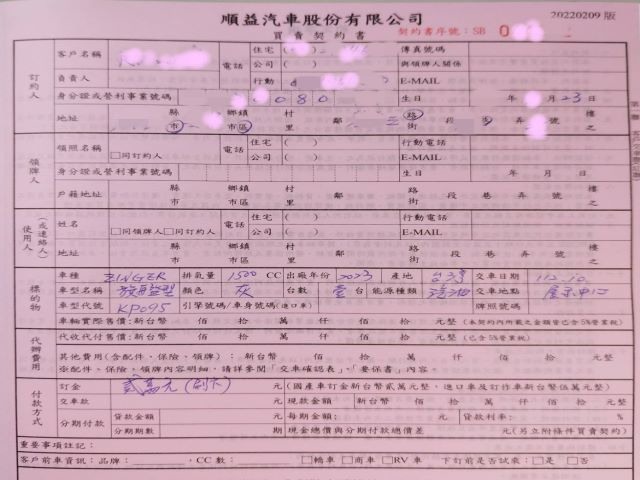 順益汽車股份有限公司
20220209 版
買賣契約書
契約書序號：SB 0
訂約人
客戶名稱 電話 住宅 ( ) 傳真號碼
公司 ( ) 與領牌人關係
負責人 行動 E-MAIL
身分證或營利事業號碼 080 生日 年 月 23 日
地址 縣市 鄉鎮市區 村里 鄰 三 路街 段 巷 弄 號 樓之
領牌人
領照名稱 □同訂約人 電話 住宅 ( ) 行動電話
公司 ( ) E-MAIL
身分證或營利事業號碼 生日 年 月 日
戶籍地址 縣市 鄉鎮市區 村里 鄰 路街 段 巷 弄 號 樓之
使用人(或連絡人)
姓名 □同領牌人□同訂約人 電話 住宅 ( ) 行動電話
公司 ( ) E-MAIL
地址 縣市 鄉鎮市區 村里 鄰 路街 段 巷 弄 號 樓之
標的物
車種 ZINGER 排氣量 1500 CC 出廠年份 2023 產地 台灣 交車日期 112.10.
車型名稱 顏色 灰 台數 壹 台 能源種類 汽油 交車地點 展示中心
車型代號 KP095 引擎號碼/車身號碼(進口車) 牌照號碼
車輛實際售價：新台幣 佰 拾 萬 仟 佰 拾 元整 (本契約內所載之金額皆已含5%營業稅)
代辦費用
代收代付售價：新台幣 佰 拾 萬 仟 佰 拾 元整 (已含5%營業稅)
其他費用(含配件、保險、領牌)：新台幣 佰 拾 萬 仟 佰 拾 元整
※配件、保險、領牌內容明細，請詳參閱「交車確認表」、「要保書」內容。
付款方式
訂金 貳萬元 (刷卡) 元(國產車訂金新台幣貳萬元整，進口車及訂作車新台幣伍萬元整)
交車款 元 現款金額 新台幣 佰 拾 萬 仟 佰 拾 元整
分期付款 貸款金額 元 每期金額： 元 貸款利率： %
分期期數 期 現金總價與分期付款總價差 元(另立附條件買賣契約)
重要事項註記：
客戶前車資訊：品牌： ，CC數： □轎車 □商車 □RV 車 下訂前是否試乘：□是 □否